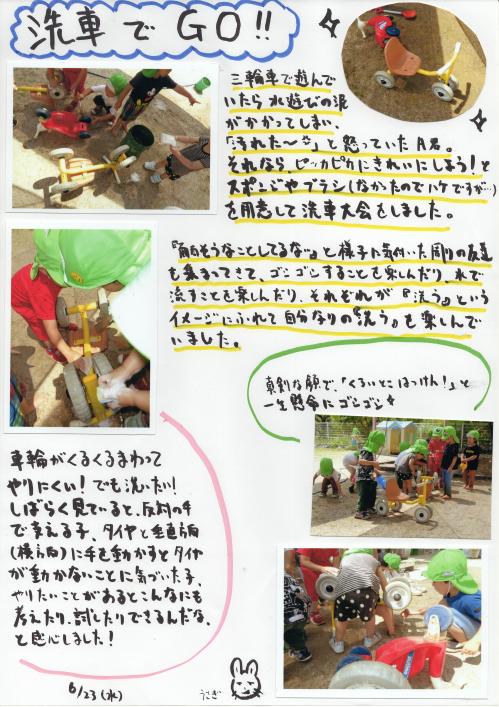 洗車でGO!!
三輪車で遊んで
いたら水遊びの泥
がかかってしまい、
「汚れた〜」と怒っていたA君。
それなら、ピッカピカにきれいにしよう!と
スポンジやブラシ(なかったのでハケですが…)
を用意して洗車大会をしました。
『面白そうなことしてるな』と様子に気付いた周りの友達
も集まってきて、ゴシゴシすることを楽しんだり、水で
流すことを楽しんだり、それぞれが『洗う』という
イメージにふれて自分なりの『洗う』を楽しんで
いました。
真剣な顔で、「くろいとこはっけん!」と
一生懸命にゴシゴシ
車輪がくるくるまわって
やりにくい!でも洗いたい!
しばらく見ていると、反対の手
で支える子、タイヤと垂直方向
(横方向)に手を動かすとタイヤ
が動かないことに気づいた子、
やりたいことがあるとこんなにも
考えたり、試したりできるんだな、
と感心しました!
6/23(水)
うさぎ